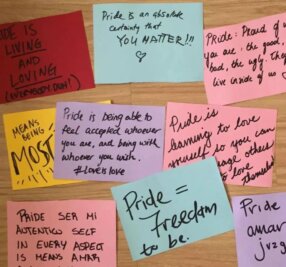 PRIDE IS
LIVING
AND
LOVING
(EVERYBODY, DUH!)
Pride is an absolute
certainty that
YOU MATTER!!!
Pride: Proud of
you are, the good,
bad, the ugly. They
live inside of us
MEANS
BEING
MOST
Pride is being able to
feel accepted whoever
you are, and being with
whoever you wish.
#Loveislove
Pride is
learning to love
yourself so you can
others
to love themselves
Pride =
Freedom
to be.
PRIDE SER MI
AUTENTICO SELF
IN EVERY ASPECT
IS MEANS AMAR
Pride
amar